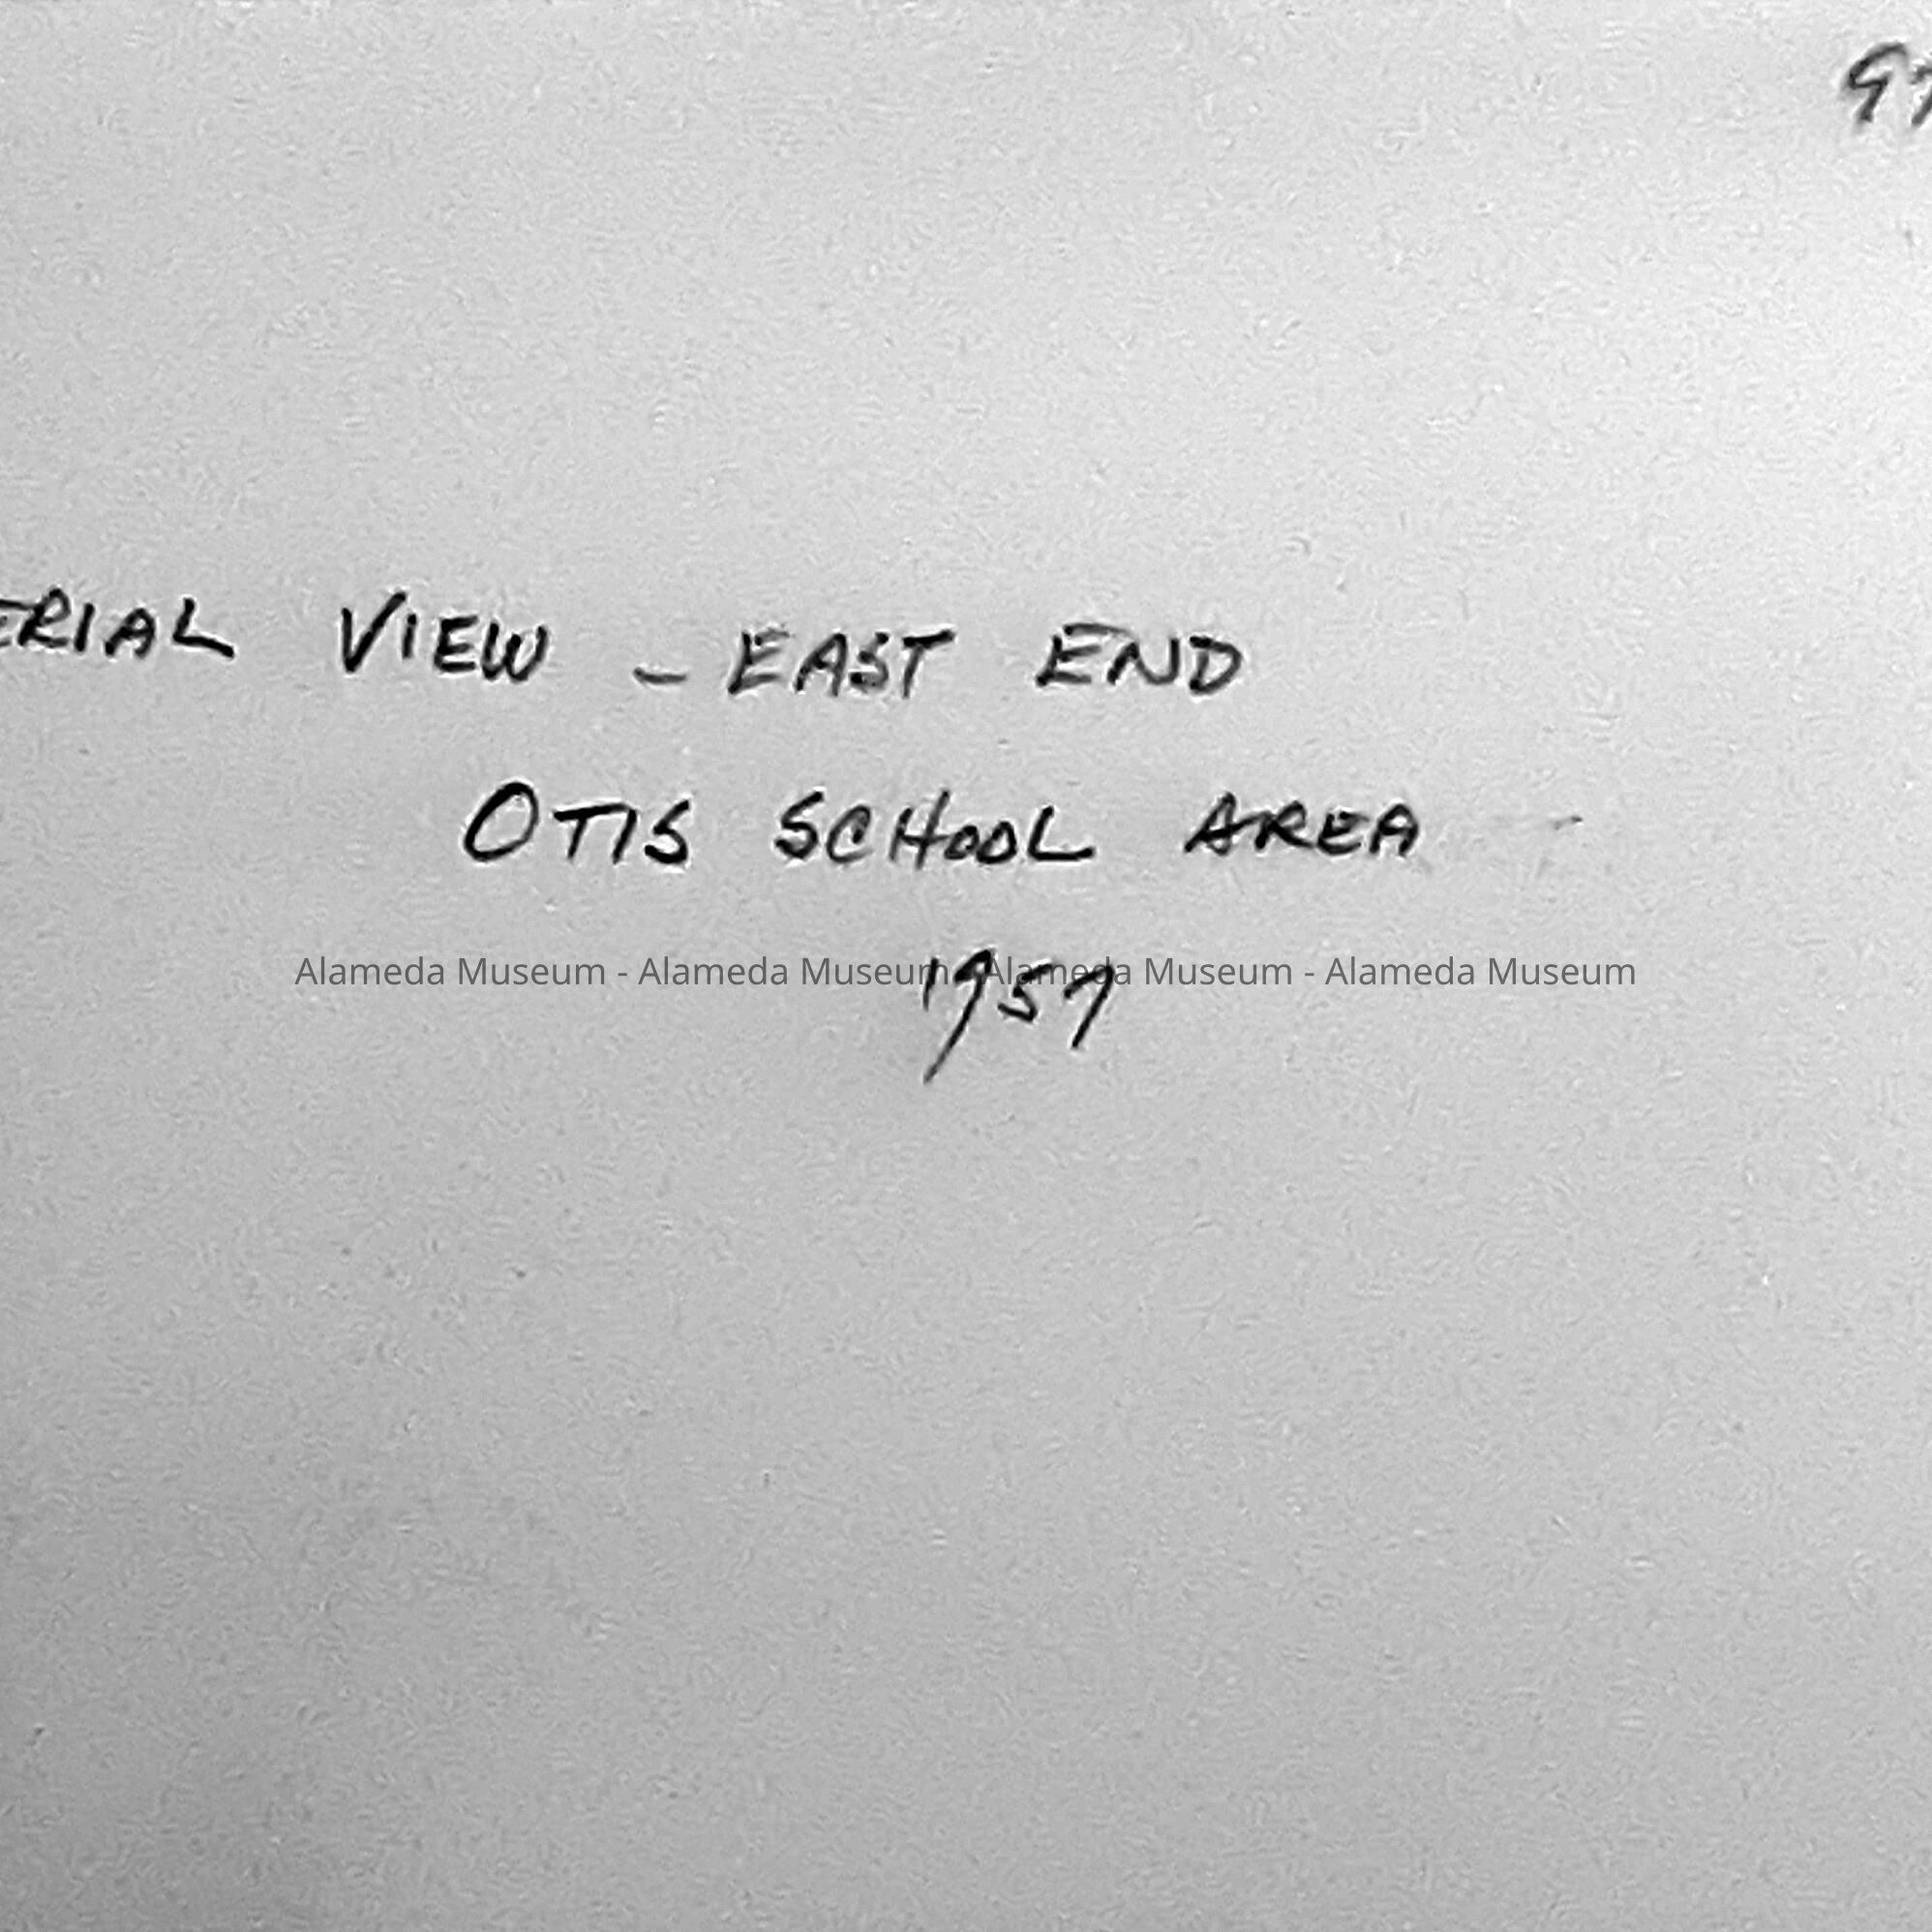 ERIAL VIEW - EAST END
OTIS SCHOOL AREA
Alameda Museum - Alameda Museum - Alameda Museum - Alameda Museum
1957